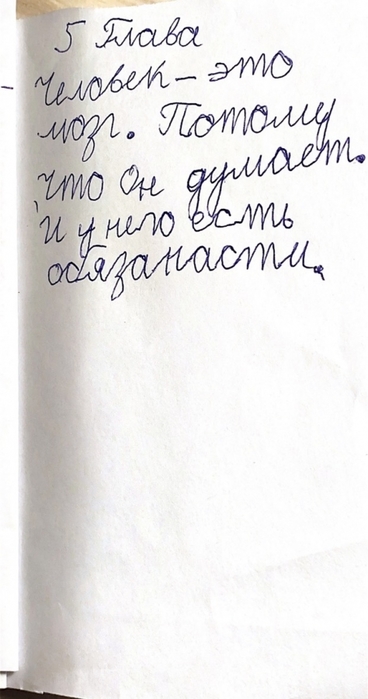 5 Глава
Человек – это
мозг. Потому
что Он думает.
И у него есть
обязанасти.